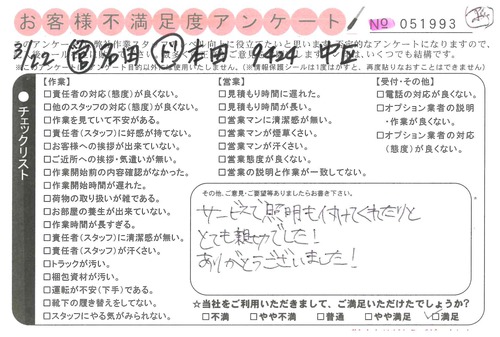 お客様不満足度アンケート
No 051993
3/22 営 名田 リ 本田 9424 中区
※このアンケートはアンケート目的以外に使用いたしません。(※情報保護シールは1度はがすと、再度貼りなおすことはできません)
チェックリスト
【作業】
□責任者の対応(態度)が良くない。
□他のスタッフの対応(態度)が良くない。
□作業を見ていて不安がある。
□責任者(スタッフ)に好感が持てない。
□お客様への挨拶が出来ていない。
□ご近所への挨拶・気遣いが無い。
□作業開始前の内容確認がなかった。
□作業開始時間が遅れた。
□荷物の取り扱いが雑である。
□お部屋の養生が出来ていない。
□作業時間が長すぎる。
□責任者(スタッフ)に清潔感が無い。
□責任者(スタッフ)が汗くさい。
□トラックが汚い。
□梱包資材が汚い。
□運転が不安(下手)である。
□靴下の履き替えをしてない。
□スタッフにやる気がみられない。
【営業】
□見積もり時間に遅れた。
□見積もり時間が長い。
□営業マンに清潔感が無い。
□営業マンが煙草くさい。
□営業マンが汗くさい。
□営業態度が良くない。
□営業の説明と作業が一致してない。
【受付・その他】
□電話の対応が良くない。
□オプション業者の説明
・作業が良くない。
□オプション業者の対応
(態度)が良くない。
その他、ご意見・ご要望等ありましたらお書き下さい。
サービスで照明も付けてくれたりと
とても親切でした!
ありがとうございました!
☆当社をご利用いただきまして、ご満足いただけたでしょうか?
□不満 □やや不満 □普通 □やや満足 □満足